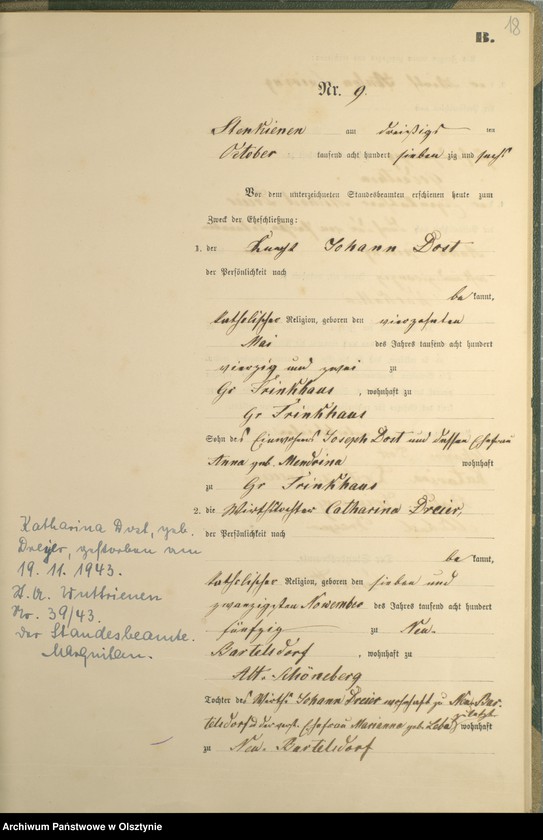 18
B.
Nr. 9.
Stenkienen am dreißigs ten
October tausend acht hundert sieben zig und sechs
Vor dem unterzeichneten Standesbeamten erschienen heute zum
Zweck der Eheschließung:
1. der Knecht Johann Dost
der Persönlichkeit nach
be kannt,
katholischer Religion, geboren den vierzehnten
Mai des Jahres tausend acht hundert
vierzig und zwei zu
Gr Trinkhaus, wohnhaft zu
Gr Trinkhaus
Sohn des Einwohners Joseph Dost und dessen Ehefrau
Anna geb. Mendrina wohnhaft
zu Gr Trinkhaus
2. die Wirthstochter Catharina Dreier,
der Persönlichkeit nach
be kannt,
katholischer Religion, geboren den sieben und
zwanzigsten November des Jahres tausend acht hundert
fünfzig zu Neu-
Bartelsdorf, wohnhaft zu
Alt-Schöneberg
Tochter des Wirths Johann Dreier wohnhaft zu Neu Bar-
telsdorf & der verst. Ehefrau Marianna geb. zuletzt wohnhaft
zu Neu-Bartelsdorf
Katharina Dost, geb.
Dreyer, gestorben am
19. 11. 1943.
St. A. Wuttrienen
Nr. 39/43.
der Standesbeamte.
Archiwum Państwowe w Olsztynie